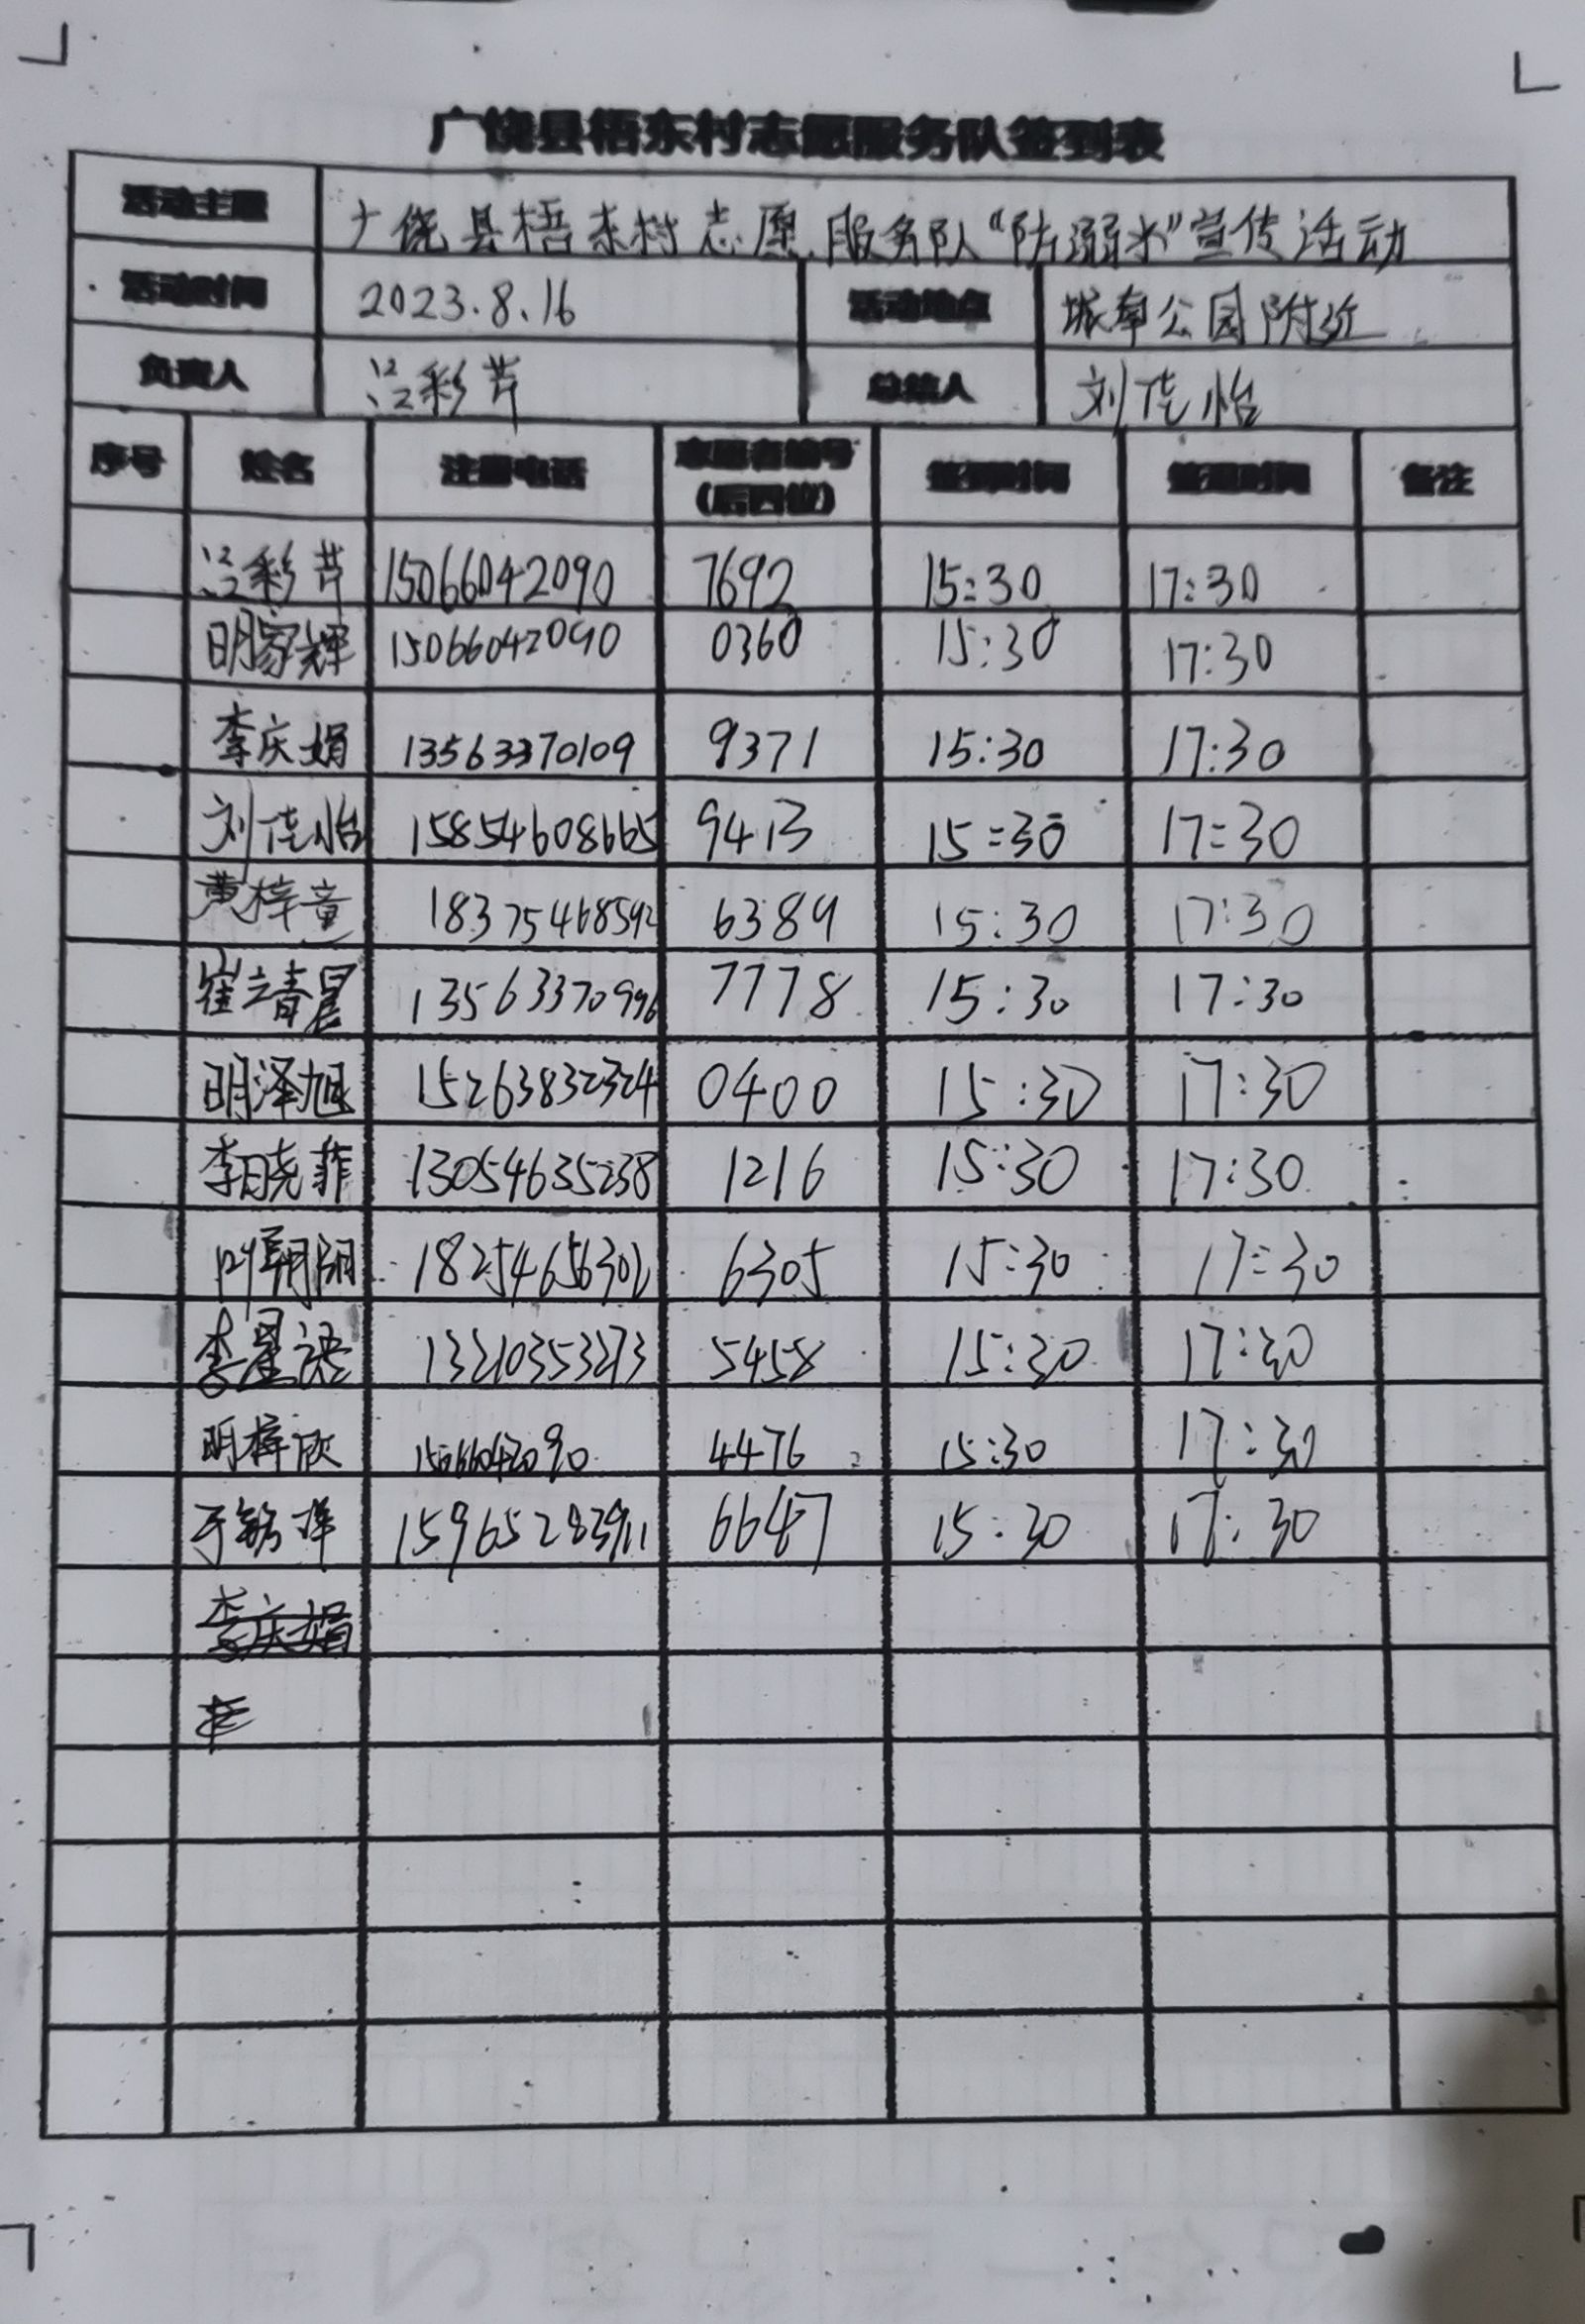 广饶县梧东村志愿服务队签到表
活动主题 广饶县梧东村志愿服务队“防溺水”宣传活动
活动时间 2023.8.16 活动地点 公园附近
负责人 彩芹 总结人 刘佳怡
序号 姓名 注册电话 志愿者编号(后四位) 签到时间 签退时间 备注
彩芹 15066042090 7692 15:30 17:30
明家辉 15066042090 0360 15:30 17:30
李庆娟 13563370109 9371 15:30 17:30
刘佳怡 15854608665 9413 15:30 17:30
黄梓童 18375468592 6389 15:30 17:30
崔靖晨 13563370996 7778 15:30 17:30
明泽旭 15263832324 0400 15:30 17:30
李晓菲 13054635238 1216 15:30 17:30
朝阳 18254656302 6305 15:30 17:30
李星语 13210353273 5458 15:30 17:30
明梓欣 15066042090 4476 15:30 17:30
于 15965283911 6647 15:30 17:30
李庆娟